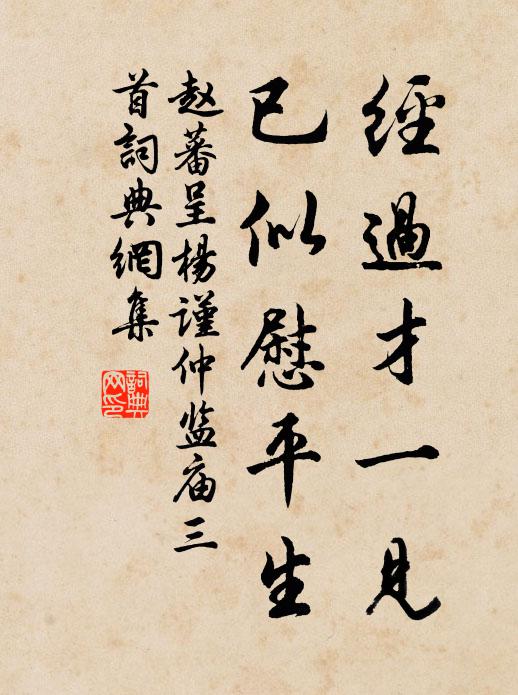 經過才一見
已似慰平生
赵蕃呈楊谨仲监庙三
首詞典網集
詞典
网印